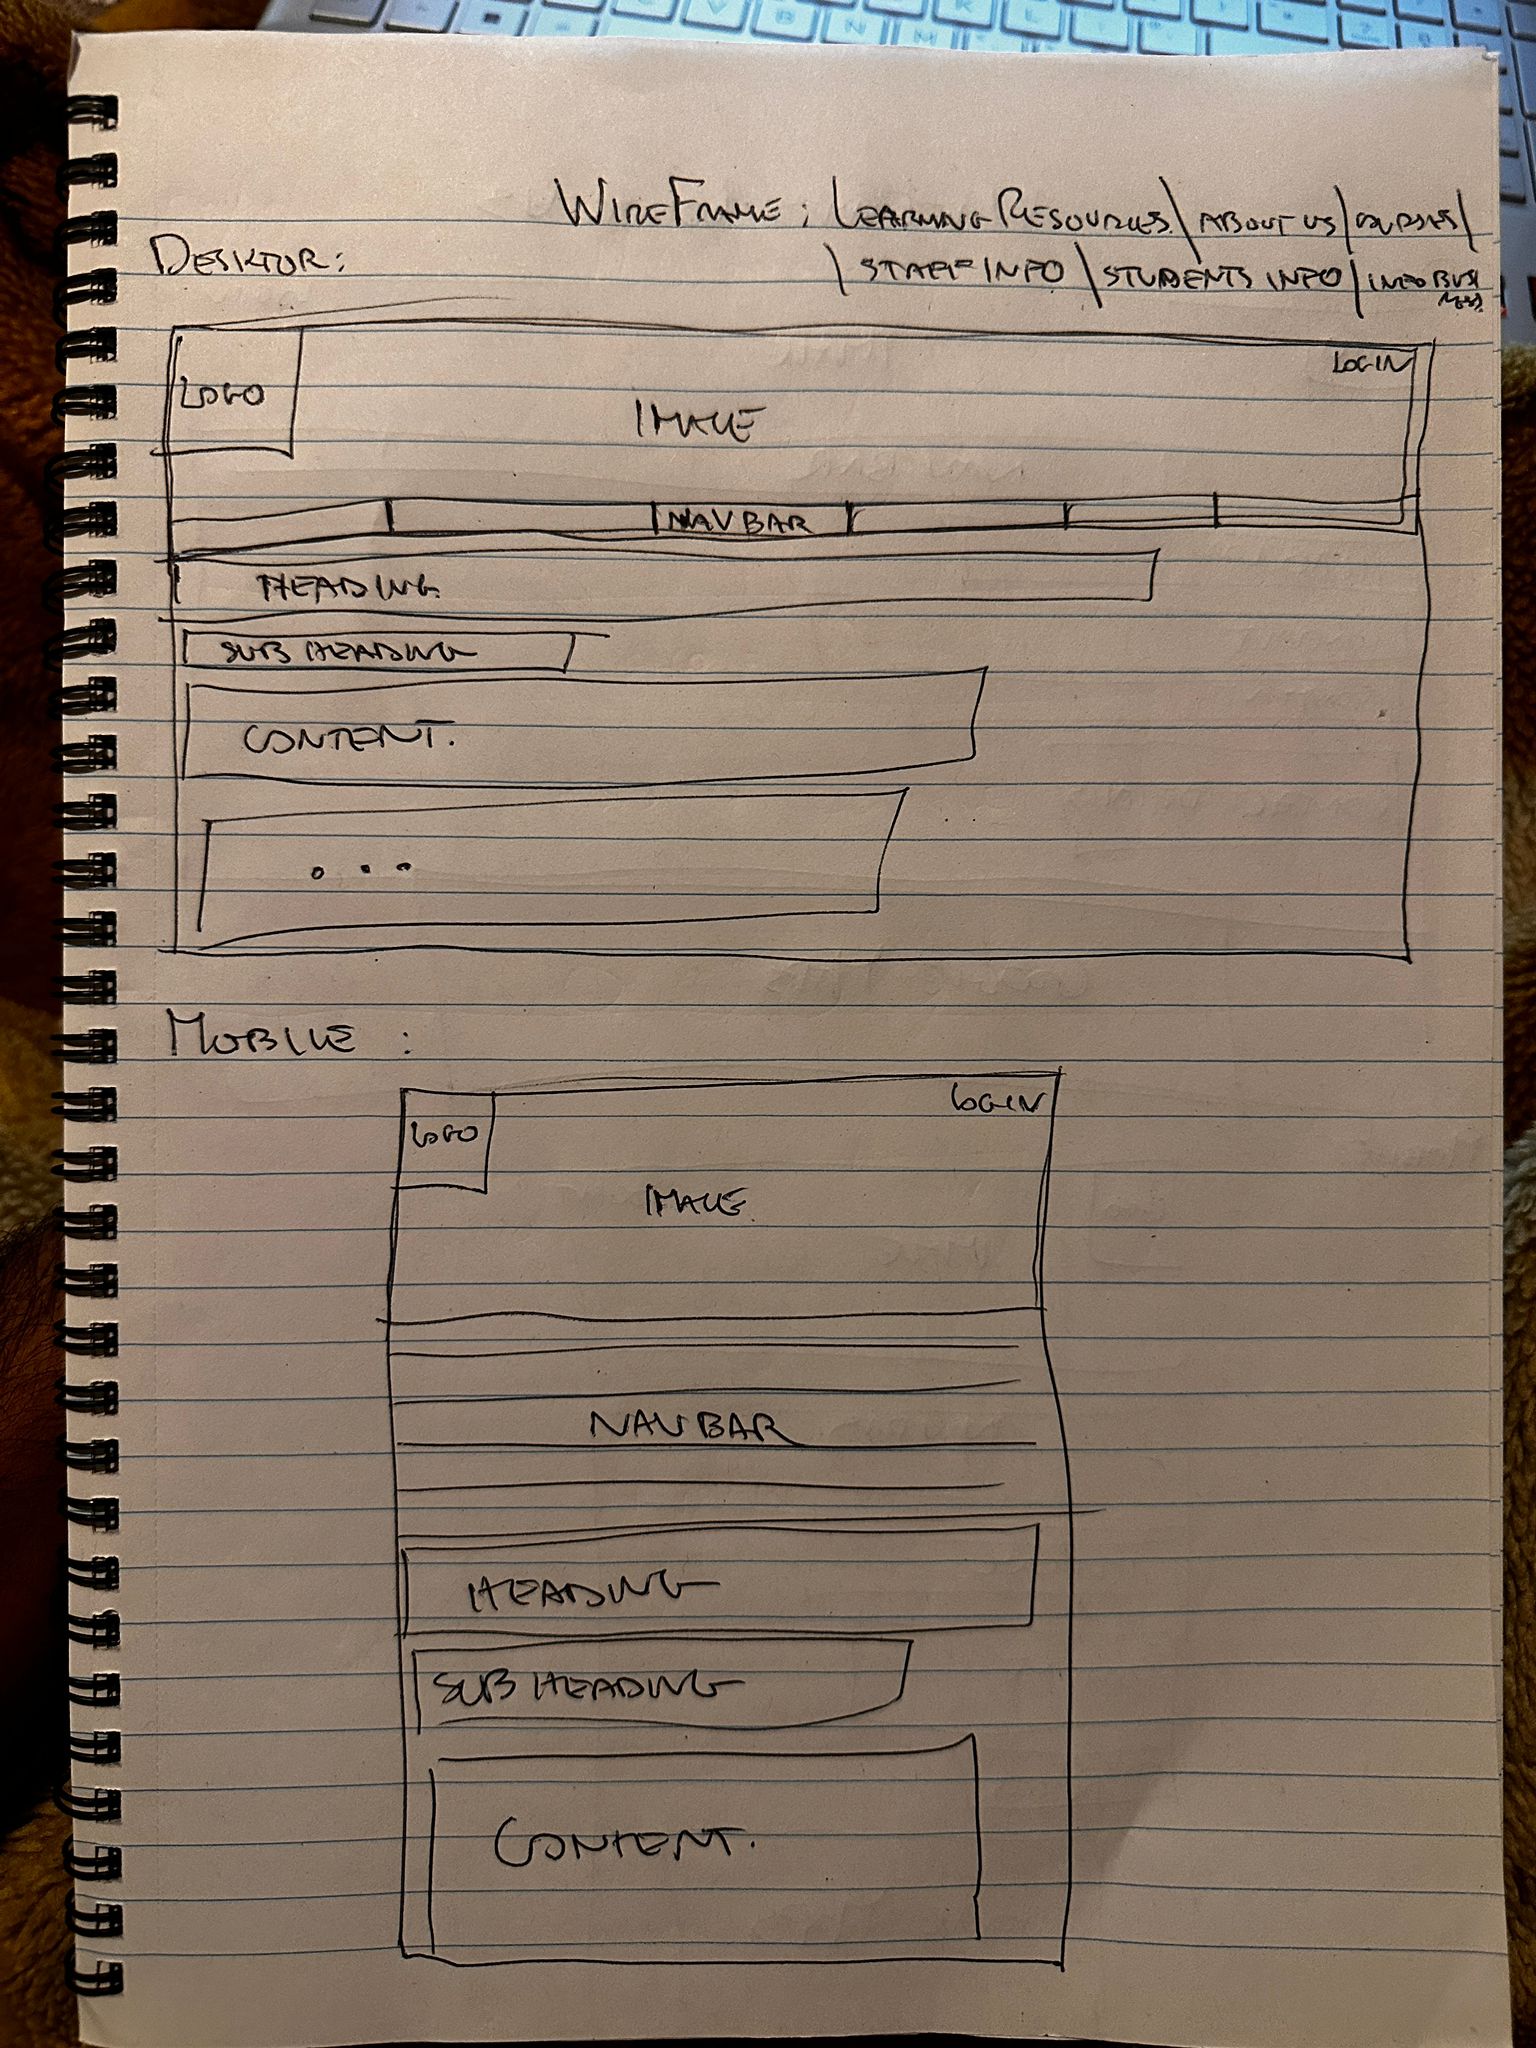 WIREFRAME: LEARNING RESOURCES \ ABOUT US / COURSES /
DESKTOP:
\ STAFF INFO \ STUDENTS INFO / INFO BUSI
NESS
LOGO
LOGIN
IMAGE
NAVBAR
HEADING
SUB HEADING
CONTENT.
...
MOBILE :
LOGO
LOGIN
IMAGE
NAVBAR
HEADING
SUB HEADING
CONTENT.